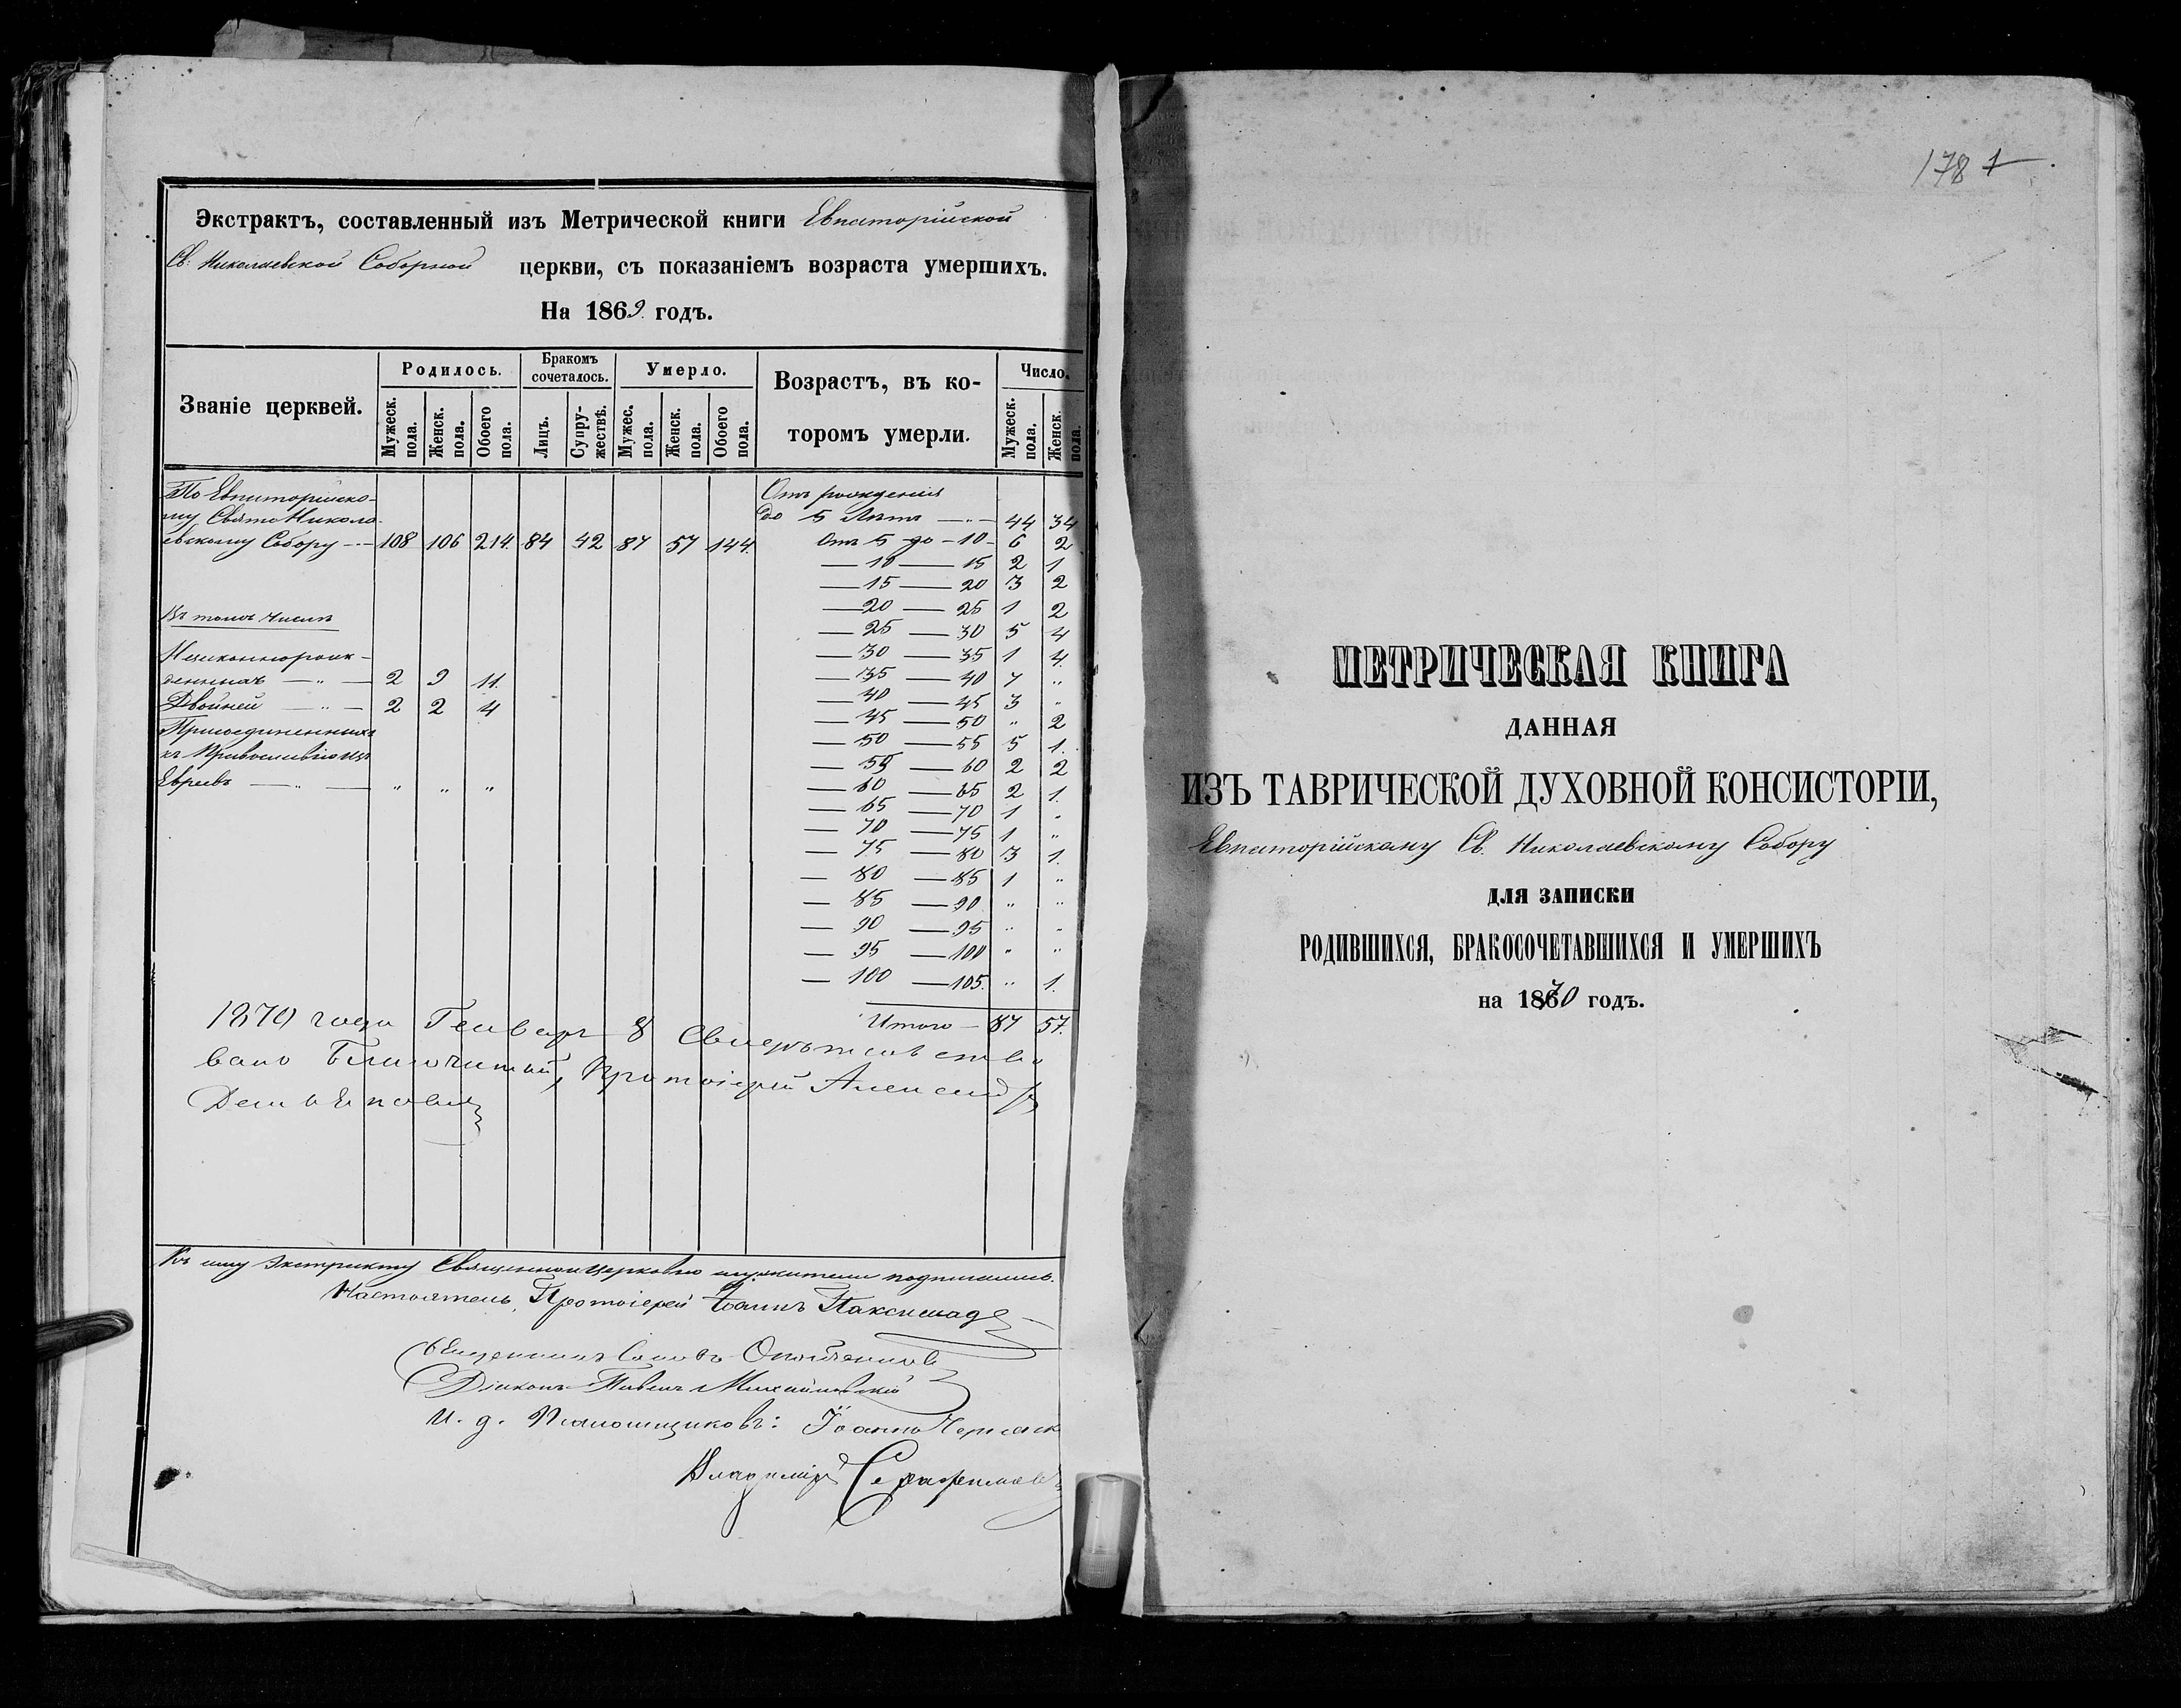 Экстрактъ, составленный изъ Метрической книги Евпаторійской
Св: Николаевской Соборной церкви, съ показаніемъ возраста умершихъ.
На 1869 годъ.
Званіе церквей.
Родилось.
Бракомъ сочеталось.
Умерло.
Возрастъ, въ которомъ умерли.
Число.
Мужеск. пола.
Женск. пола.
Обоего пола.
Лицъ.
Супружествъ.
Мужес. пола.
Женск. пола.
Обоего пола.
Мужеск. пола.
Женск. пола.
По Евпаторійско-
му Свято Никола-
евскому Собору — 108 106 214. 84 42 87 57 144.
Въ томъ числѣ
Незаконнорож-
денныхъ — „ — 2 9 11.
Двойней — „ — 2 2 4
Присоединенныхъ
къ Православію изъ
Евреевъ — „ — „ „ „
Отъ рожденія
до 5 Лѣтъ — „ — 44 34
Отъ 5 до — 10 — 6 2
— 10 — 15 2 1
— 15 — 20 3 2
— 20 — 25 1 2
— 25 — 30 5 4
— 30 — 35 1 4.
— 35 — 40 7 „
— 40 — 45 3 „
— 45 — 50 „ 2
— 50 — 55 5 1.
— 55 — 60 2 2
— 60 — 65 2 1.
— 65 — 70 1 „
— 70 — 75 1 „
— 75 — 80 3 1.
— 80 — 85 1 „
— 85 — 90 „ „
— 90 — 95 „ „
— 95 — 100 „ „
— 100 — 105. „ 1.
Итого — 87 57.
1870 года Генваря 8 Свидѣтельство
вано Благочинный, Протоіерей Александръ
Къ сему Экстракту Священноцерковно служители подписались.
Настоятель, Протоіерей Іоаннъ
Священникъ
Діаконъ Павелъ Михайловскій
И. д. Псаломщиковъ: Іоаннъ
Владиміръ Серафимовъ
178 1
МЕТРИЧЕСКАЯ КНИГА
ДАННАЯ
ИЗЪ ТАВРИЧЕСКОЙ ДУХОВНОЙ КОНСИСТОРІИ,
Евпаторійскому Св. Николаевскому Собору
ДЛЯ ЗАПИСКИ
РОДИВШИХСЯ, БРАКОСОЧЕТАВШИХСЯ И УМЕРШИХЪ
на 1870 годъ.